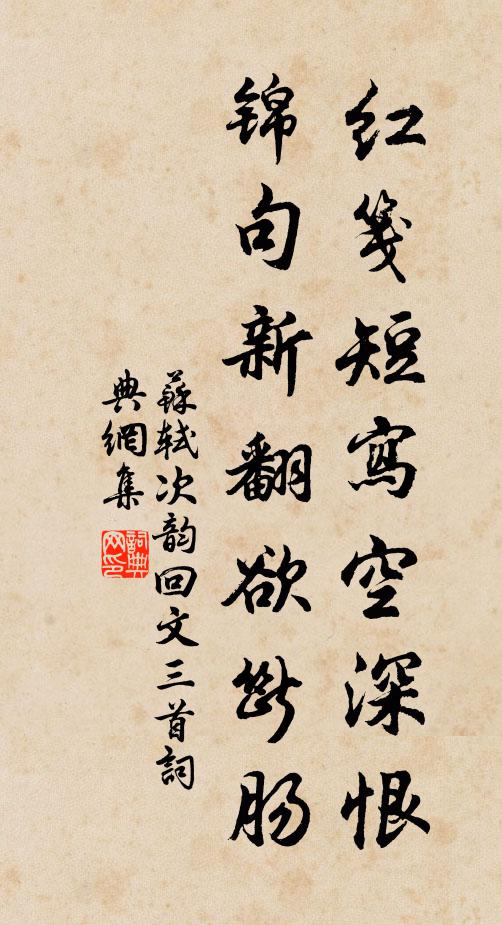 红笺短寫空深恨
锦句新翻欲断肠
蘇轼次韵回文三首詞
典網集
詞典网印